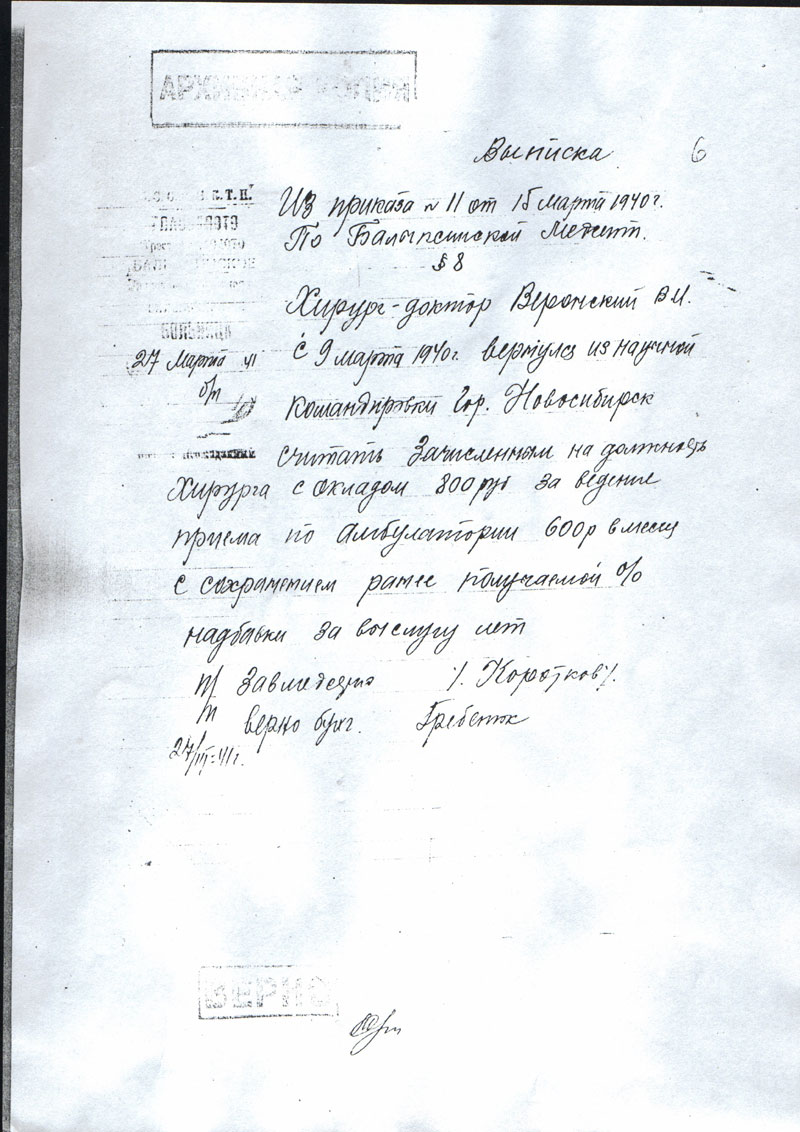 АРХИВНАЯ КОПИЯ
Выписка 6
Из приказа № 11 от 15 марта 1940 г.
По Балыксинской
§ 8
Хирург-доктор Веронский В.И.
с 9 марта 1940 г. вернулся из научной
командировки Гор. Новосибирск
считать зачисленным на должность
хирурга с окладом 800 руб за ведение
приема по амбулатории 600 р в месяц
с сохранением ранее получаемой %
надбавки за выслугу лет
Коротков
верно бухг. Гребенюк
27/III-41 г.
БОЛЬНИЦА
27 Марта 41
ВЕРНО